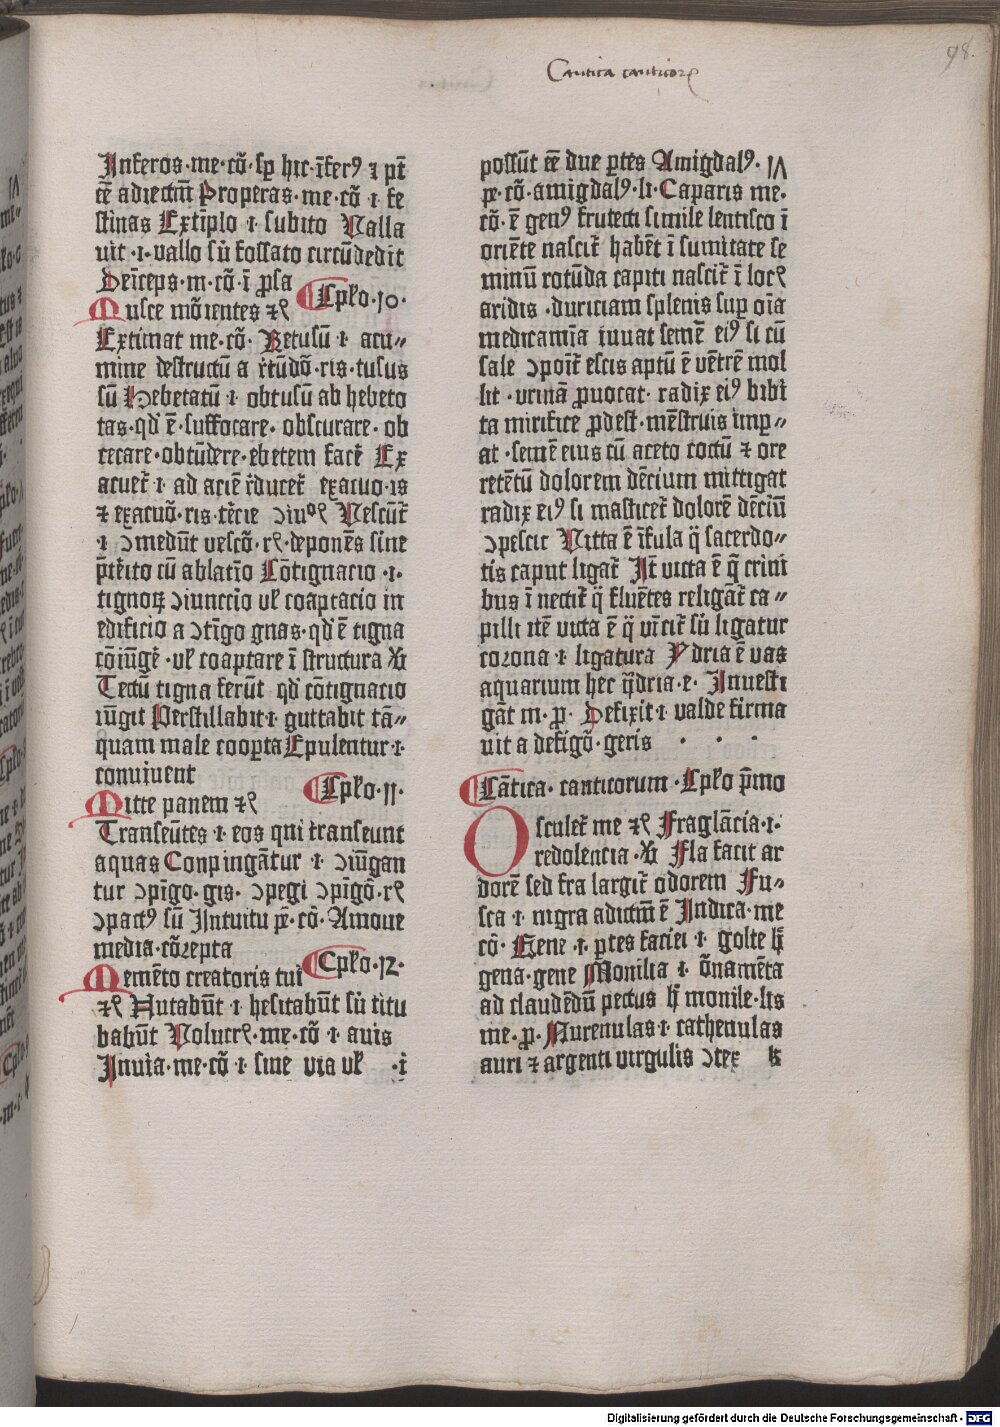 98.
Cantica canticoꝝ
Inferos·me·cō·sꝑ hic·īferꝰ ⁊ pt̄
eē adiectm̄ Properas·me·cō ⁊ fe
stinas Extīplo ı subito Valla
uit·ı·vallo sū fossato circūdedit
Deīceps·m·cō·ī ꝓsa
Cpło·10·
Musce mōientes ⁊c̄
Extimat me·cō· Retusū ı acu⸗
mine destructū a r̄tūdō·ris·tusus
sū Hebetatū ı obtusū ab hebeto
tas·qd̓ ē·suffocare· obscurare· ob
cecare·obtūdere·ebetem facer̄ Ex
acuet̄ ı ad aciē r̄ducet̄ exacuo·is
⁊ exacuō·ris·tēcie ꝯiuᵒꝛ Vescūt̄
ı ꝯmedūt vescō·r̄·deponēs sine
p̄tēito cū ablatīo Cōtignacio·ı·
tignoꝝ ꝯiunccio vł coaptacio in
edificio a ꝯtīgo gnas·qd̓ ē tigna
cōiūgē·vł coaptare ī structura vn̄
Tectū tigna ferūt qd̓ cōtignacio
iūgit Perstillabit·ı guttabit tā⸗
quam male cooꝑta Epulentur·ı·
conuiuent
Cpło·11·
Mitte panem ⁊c̄
Transeūtes ı eos qui transeunt
aquas Conpingātur ı ꝯiūgan
tur ꝯpīgo·gis· ꝯpegi ꝯpīgō·r̄
ꝯpactꝰ sū Intuitu p̄·cō·Amoue
media·cōrepta
Cpło·12·
Memēto creatoris tui
⁊c̄ Nutabūt ı hesitabūt sū titu
babūt Volucr̄·me·cō ı auis
Inuia·me·cō ı sine via vł ·ī
possūt eē due ꝑtes Amigdalꝰ·
ꝑ·cō·amigdalꝰ·li·Caparis me·
cō·ē genꝰ frutecti simile lentisco ī
oriēte nascit̄ habēt ī sumitate se
minū rotūda capiti nascit̄ ī locꝭ
aridis·duriciam splenis suꝑ oīa
medicamīa iuuat semē eiꝰ si cū
sale ꝯpoīt̄ escis aptū ē vētrē mol
lit·vrinā ꝓuocat·radix eiꝰ bibi
ta mirifice ꝓdest·mēstruis imꝑ⸗
at·semē eius cū aceto coctū ⁊ ore
retētū dolorem dēcium mittigat
radix eiꝰ si masticet̄ dolorē dēciū
ꝯpescit Vitta ē īfula q̄ sacerdo⸗
tis caput ligat̄ It̄ victa ē q̄ crini
bus ī nectit̄ q̄ fluētes religāt̄ ca⸗
pilli itē victa ē q̄ vīcit̄ sū ligatur
corona·ı ligatura Ydria ē vas
aquarium hec q̄dria·e· Inuesti
gāt m·ꝑ· Defixit·ı valde firma
uit a defigō·geris
Cātica·canticorum·Cpło pͫmo
Osculet̄ me ⁊c̄ Fraglācia·ı·
redolencia·vn̄ Fla facit ar
dorē sed fra largit̄ odorem Fu⸗
sca ı nigra adictm̄ ē Indica·me
cō· Gene ı ꝑtes faciei ı golte h̄
gena·gene Monilia ı ōnamēta
ad claudēdū pectus h̄ monile·lis
me·ꝑ·Murenulas ı cathenulas
auri ⁊ argenti virgulis ꝯtex
k
Digitalisierung gefördert durch die Deutsche Forschungsgemeinschaft - DFG